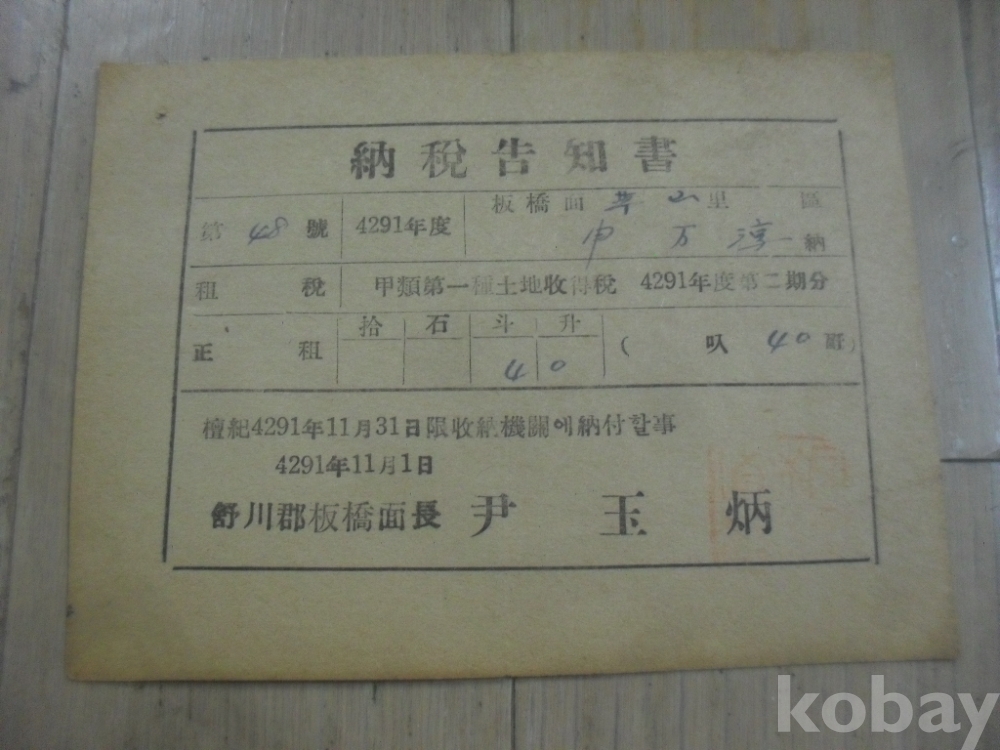 納稅告知書
第 48 號 4291年度 板橋面 山里 區
申 万 淳 納
租稅 甲類第一種土地收得稅 4291年度第二期分
正租 拾 石 斗 升 ( 叺 40 瓩)
4 0
檀紀4291年11月31日限收納機關에納付할事
4291年11月1日
舒川郡板橋面長 尹玉炳
kobay